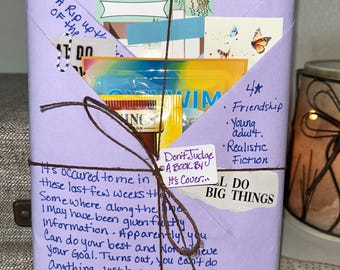 A Rip up the
of the
AT DO
SWIM
ING
4☆
· Friendship
· Young
adult.
· Realistic
Fiction
Don't Judge
A Book By
It's Cover...
LL DO
BIG THINGS
It's occured to me in
these last few weeks tha
Somewhere along the line
I may have been given faulty
information. Apparently, you
Can do your best and Not achieve
your Goal. Turns out, you can't do
anything